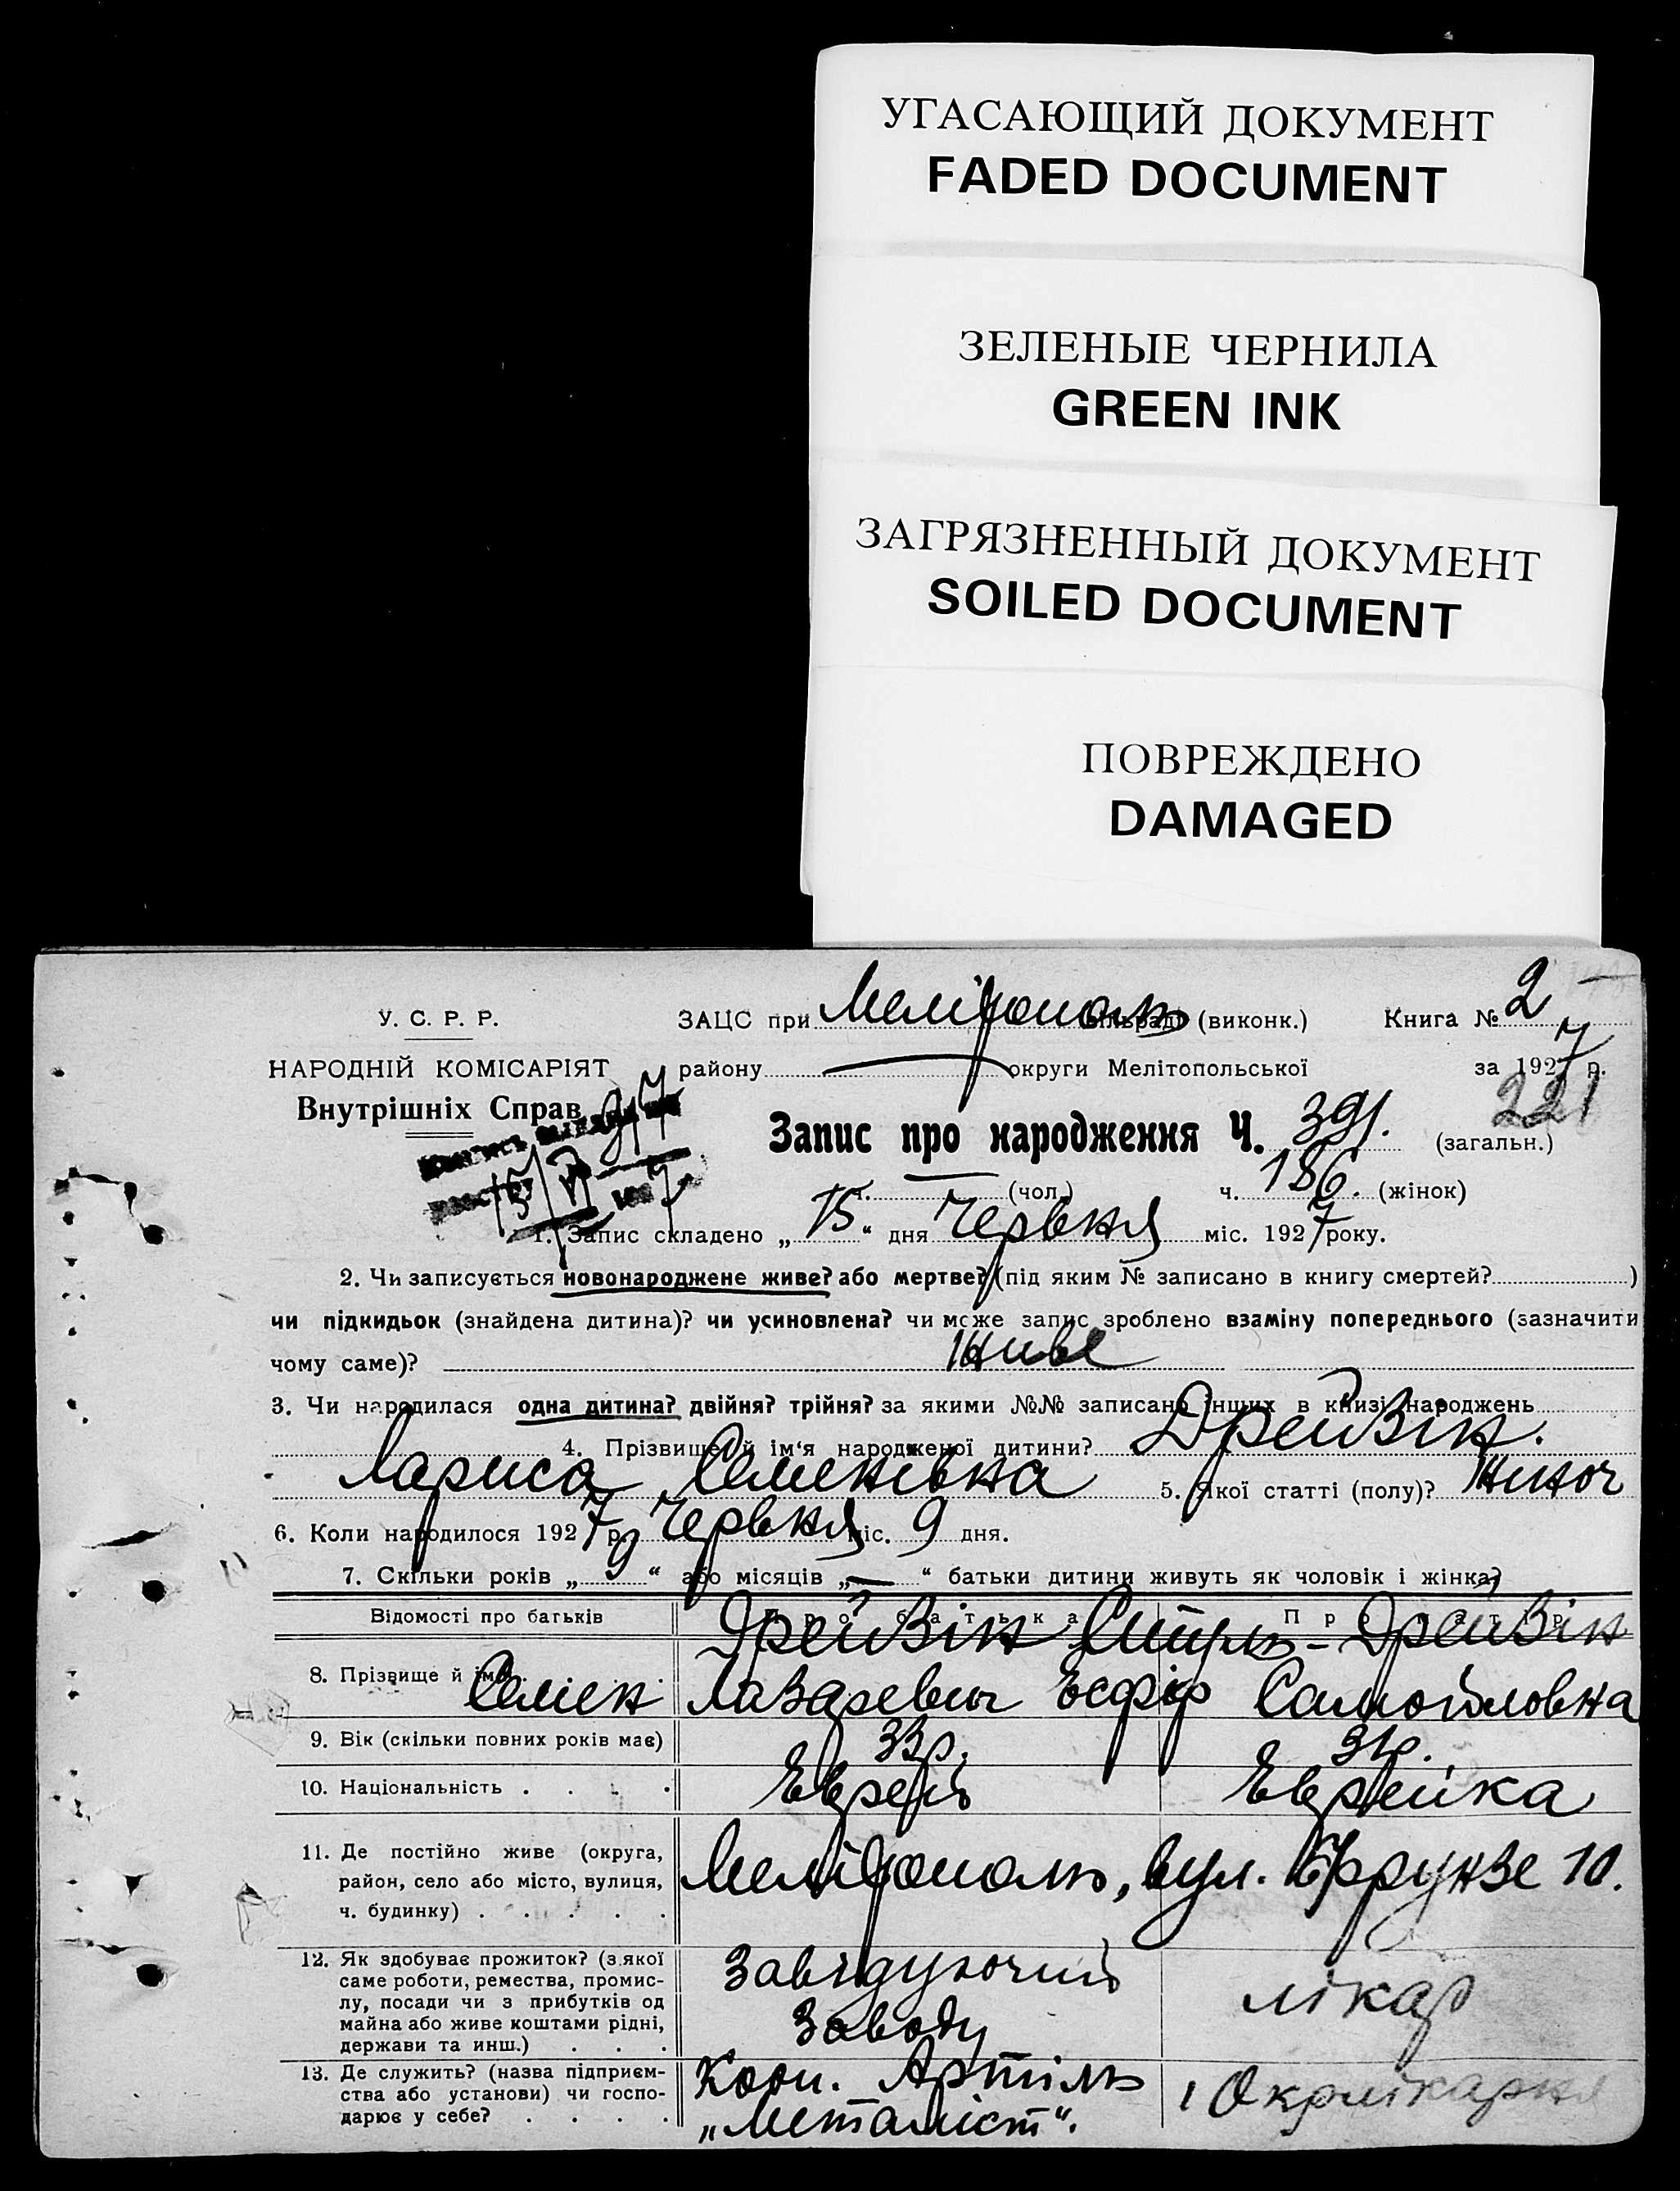 УГАСАЮЩИЙ ДОКУМЕНТ
FADED DOCUMENT
ЗЕЛЕНЫЕ ЧЕРНИЛА
GREEN INK
ЗАГРЯЗНЕННЫЙ ДОКУМЕНТ
SOILED DOCUMENT
ПОВРЕЖДЕНО
DAMAGED
У. С. Р. Р. ЗАЦС при Мелітополь (виконк.) Книга № 2
НАРОДНІЙ КОМІСАРІЯТ району округи Мелітопольської за 1927 р.
Внутрішніх Справ 221
Запис про народження Ч. 391. (загальн.)
ч. (чол.) ч. 186. (жінок)
1. Запис складено „ 15 “ дня Червня міс. 1927 року.
2. Чи записується новонароджене живе? або мертве? (під яким № записано в книгу смертей? )
чи підкидьок (знайдена дитина)? чи усиновлена? чи може запис зроблено взаміну попереднього (зазначити
чому саме)? Живе
3. Чи народилася одна дитина? двійня? трійня? за якими №№ записано інших в книзі народжень
4. Прізвище й ім‘я народженої дитини? Дрейвін.
Лариса Семенівна 5. Якої статті (полу)? Жіноч
6. Коли народилося 1927 р. Червня міс. 9 дня.
7. Скільки років „ 9 “ або місяців „ — “ батьки дитини живуть як чоловік і жінка?
Відомості про батьків Про батька Про матір
Дрейвін Дрейвін
8. Прізвище й ім‘я Семен Лазаревич Есфір Самойловна
9. Вік (скільки повних років має) 33 р. 31 р.
10. Національність . . . . Еврей Еврейка
11. Де постійно живе (округа,
район, село або місто, вулиця, Мелітополь, вул. Фрунзе 10.
ч. будинку) . . . . .
12. Як здобуває прожиток? (з якої
саме роботи, ремества, промис-
лу, посади чи з прибутків од
майна або живе коштами рідні,
держави та инш.) . . .
Завідуючий
Заводу
лікар
13. Де служить? (назва підприєм-
ства або установи) чи госпо-
дарює у себе? . . . .
Кооп. Артіль
„Металіст“.
Окрлікарня